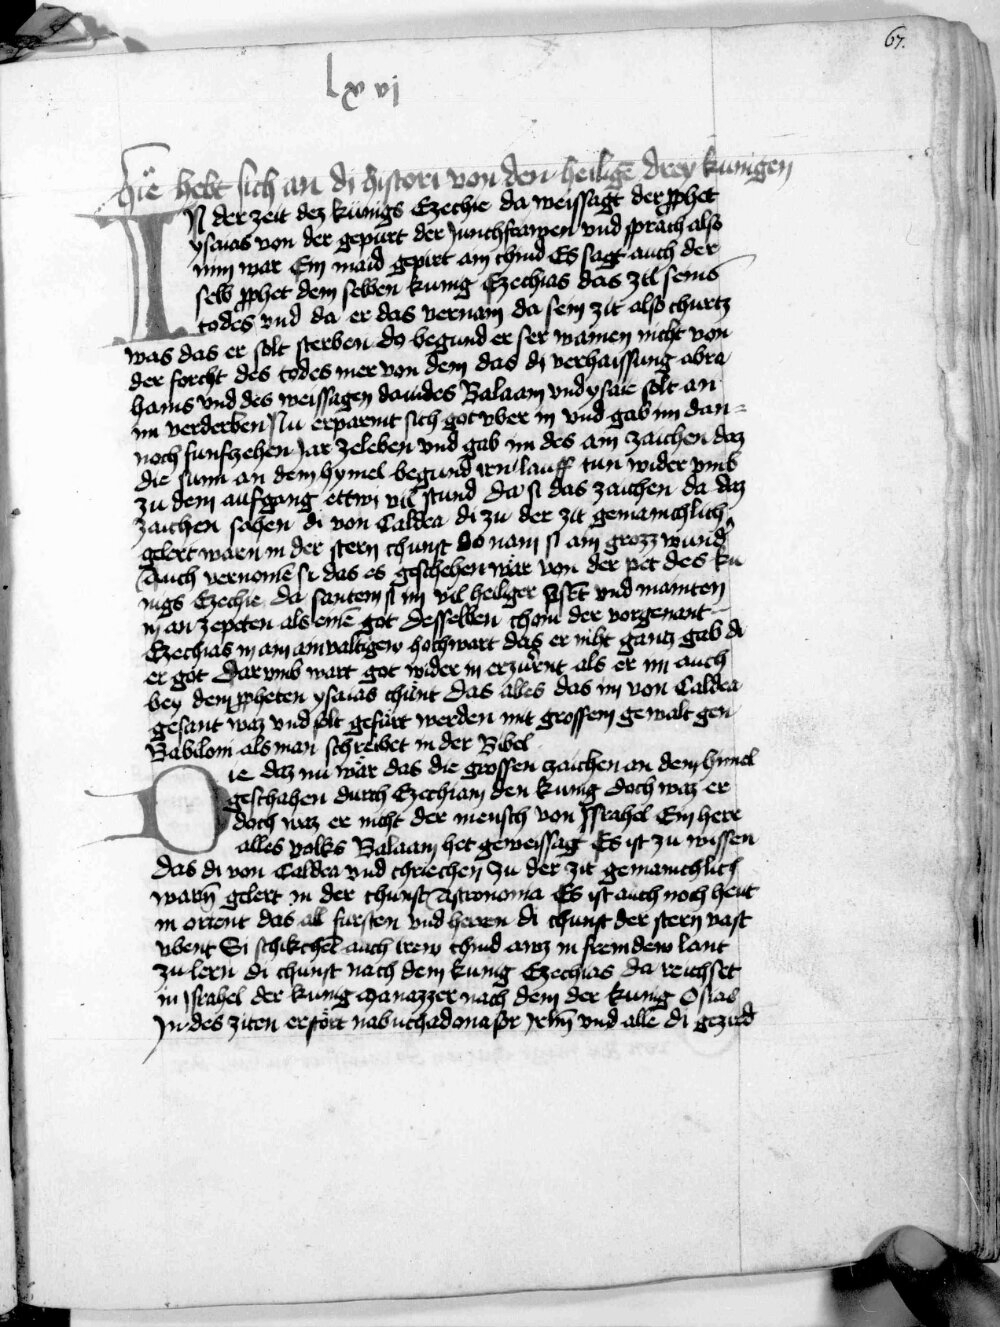 67.
lxvj
Hie hebt sich an di histori von den heiligē drey kunigen
IN der zeit dez künigs Ezechie da weissagt der ꝓphet
ysaias von der gepurt der Junchfrawen vnd sprach also
nim war Ein maid gepirt ain chind Es sagt auch der
selb ꝓphet dem selben kunig Ezechias das zil seins
todes vnd da er das vernam da sein zit also churtz
was das er solt sterben do begund er ser wainen nicht von
der forcht des todes mer von dem das di verhaissung abra
hams vnd des weissagen dauides Balaam vnd ysaie solt an
im verderben Nu erparmt sich got vber in vnd gab im dan=
noch funfzehen Jar zeleben vnd gab im des ain zaichen daz
die sunn an dem hymel begund irn lauff tun wider vmb
zu dem aufgang ettwi vil stund Da si das zaichen da daz
zaichen sahen di von Caldea di zu der zit gemainchlich
gelert warn in der stern chunst Do nam si ain grozz wund
Auch vernomē si das es geschehen wär von der pet des ku
nigs Ezechie Da santem si im vil heiliger vnd mainten
in an zepeten als einē got Desselben chom der vorgenant
Ezechias in ain ainvaltigew hochwart das er niht gantz gab di
er got Darvmb wart got wider in erzürnt als er im auch
bey dem ꝓpheten ysaias chünt Das alles das im von Caldea
gesant waz vnd solt gefürt werden mit grossem gewalt gen
Babiloni als man schreibet in der Bibel
Die daz nu wär das die grossen zaichen an dem himel
geschahen durch Ezechiam den kunig Doch waz er
doch waz er nicht der mensch von Jsrahel Ein herr
alles volks Balaam het geweissag Es ist zu wissen
das di von Caldea vnd chriechen zu der zit gemainchlich
warn gelert in der chunst Astronomia Es ist auch noch heut
in orient das all fursten vnd herren di chunst der stern vast
vbent Si schikchet auch irew chind awz in fremdew lant
zu lern di chunst nach dem kunig Ezechias da reichset
in Jsrahel der kunig Manazzer nach dem der kunig Osias
Jn des ziten erstört nabuchadonasor Jrlm̄ vnd alle di gezird